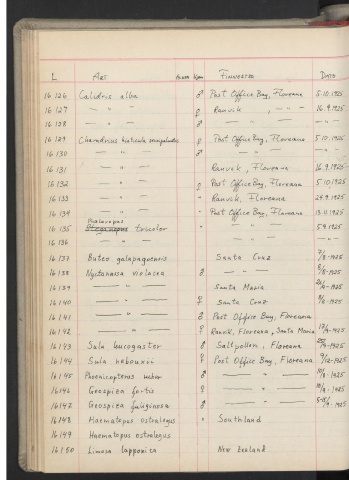 L Art Alder Kjønn Finnested Dato
16126 Calidris alba ♂ Post Office Bay, Floreana 5.10.1925
16127 — " — ♀ Ranvik, — " — 16.9.1925
16128 — " — ♂ — " — — " —
16129 Charadrius hiaticula semipalmatus ♀ Post Office Bay, Floreana 5.10.1925
16130 — " — ♂ — " — — " —
16131 — " — Ranvik, Floreana 16.9.1925
16132 — " — ♀ Post Office Bay, Floreana 5.10.1925
16133 — " — " Ranvik, Floreana 24.9.1925
16134 — " — " Post Office Bay, Floreana 13.11.1925
Phalaropus
16135 tricolor " — " — 5.9.1925
16136 — " — — " — — " —
16137 Buteo galapagoensis Santa Cruz
16138 Nyctanassa violacea ♂ — " —
16139 — " — Santa Maria
16140 — " — ♀ Santa Cruz
16141 — " — ♂ Post Office Bay, Floreana
16142 — " — ♀ Ranvik, Floreana, Santa Maria
16143 Sula leucogaster ♂ Saltpollen, Floreana
16144 Sula nebouxii ♀ Post Office Bay, Floreana
16145 Phoenicopterus ruber ♂ — " —
16146 Geospiza fortis ♀ — " —
16147 Geospiza fuliginosa ♂ — " —
16148 Haematopus ostralegus " Southland
16149 Haematopus ostralegus
16150 Limosa lapponica New Zealand